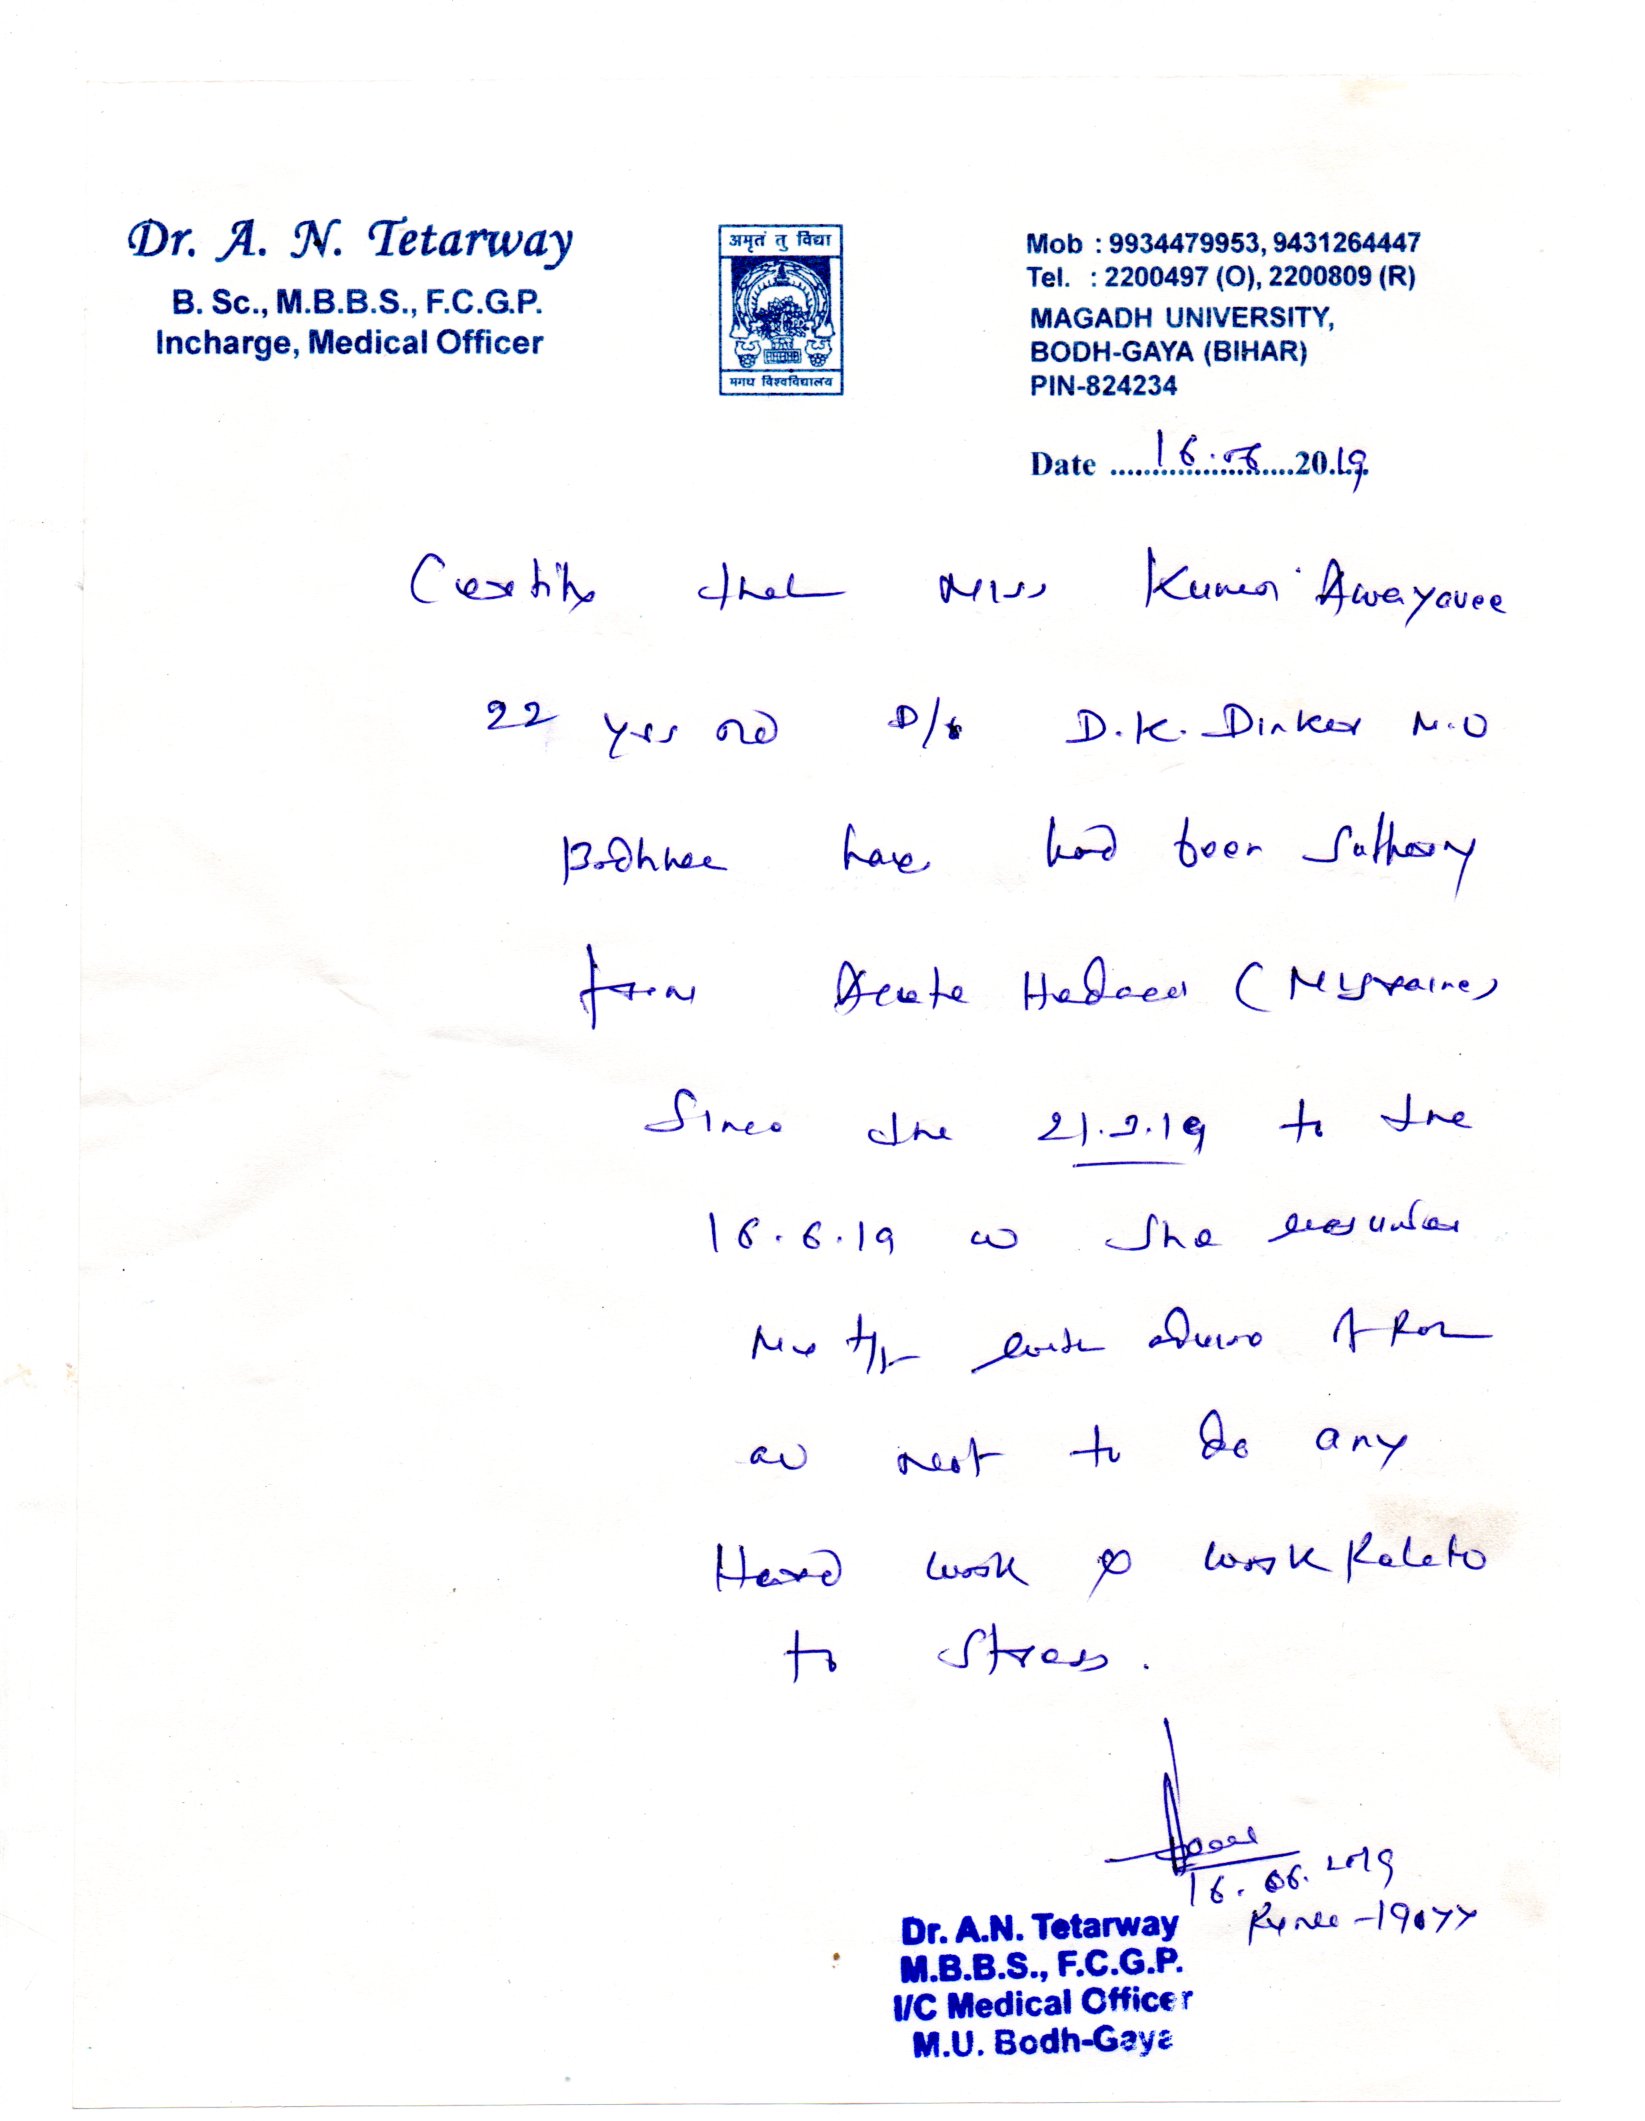 Dr. A. N. Tetarway
B. Sc., M.B.B.S., F.C.G.P.
Incharge, Medical Officer
अमृतं तु विद्या
मगध विश्वविद्यालय
Mob : 9934479953, 9431264447
Tel. : 2200497 (O), 2200809 (R)
MAGADH UNIVERSITY,
BODH-GAYA (BIHAR)
PIN-824234
Date 16.06.2019
Certify that Miss Kumari
22 yrs old D/o D.K. Dinker M.U
have had been
from Acute (Mygraine)
Since the 21.2.19 to the
16.6.19 she was under
with
not to do any
Hard work work
to stress.
16.06.2019
Dr. A.N. Tetarway
M.B.B.S., F.C.G.P.
I/C Medical Officer
M.U. Bodh-Gaya